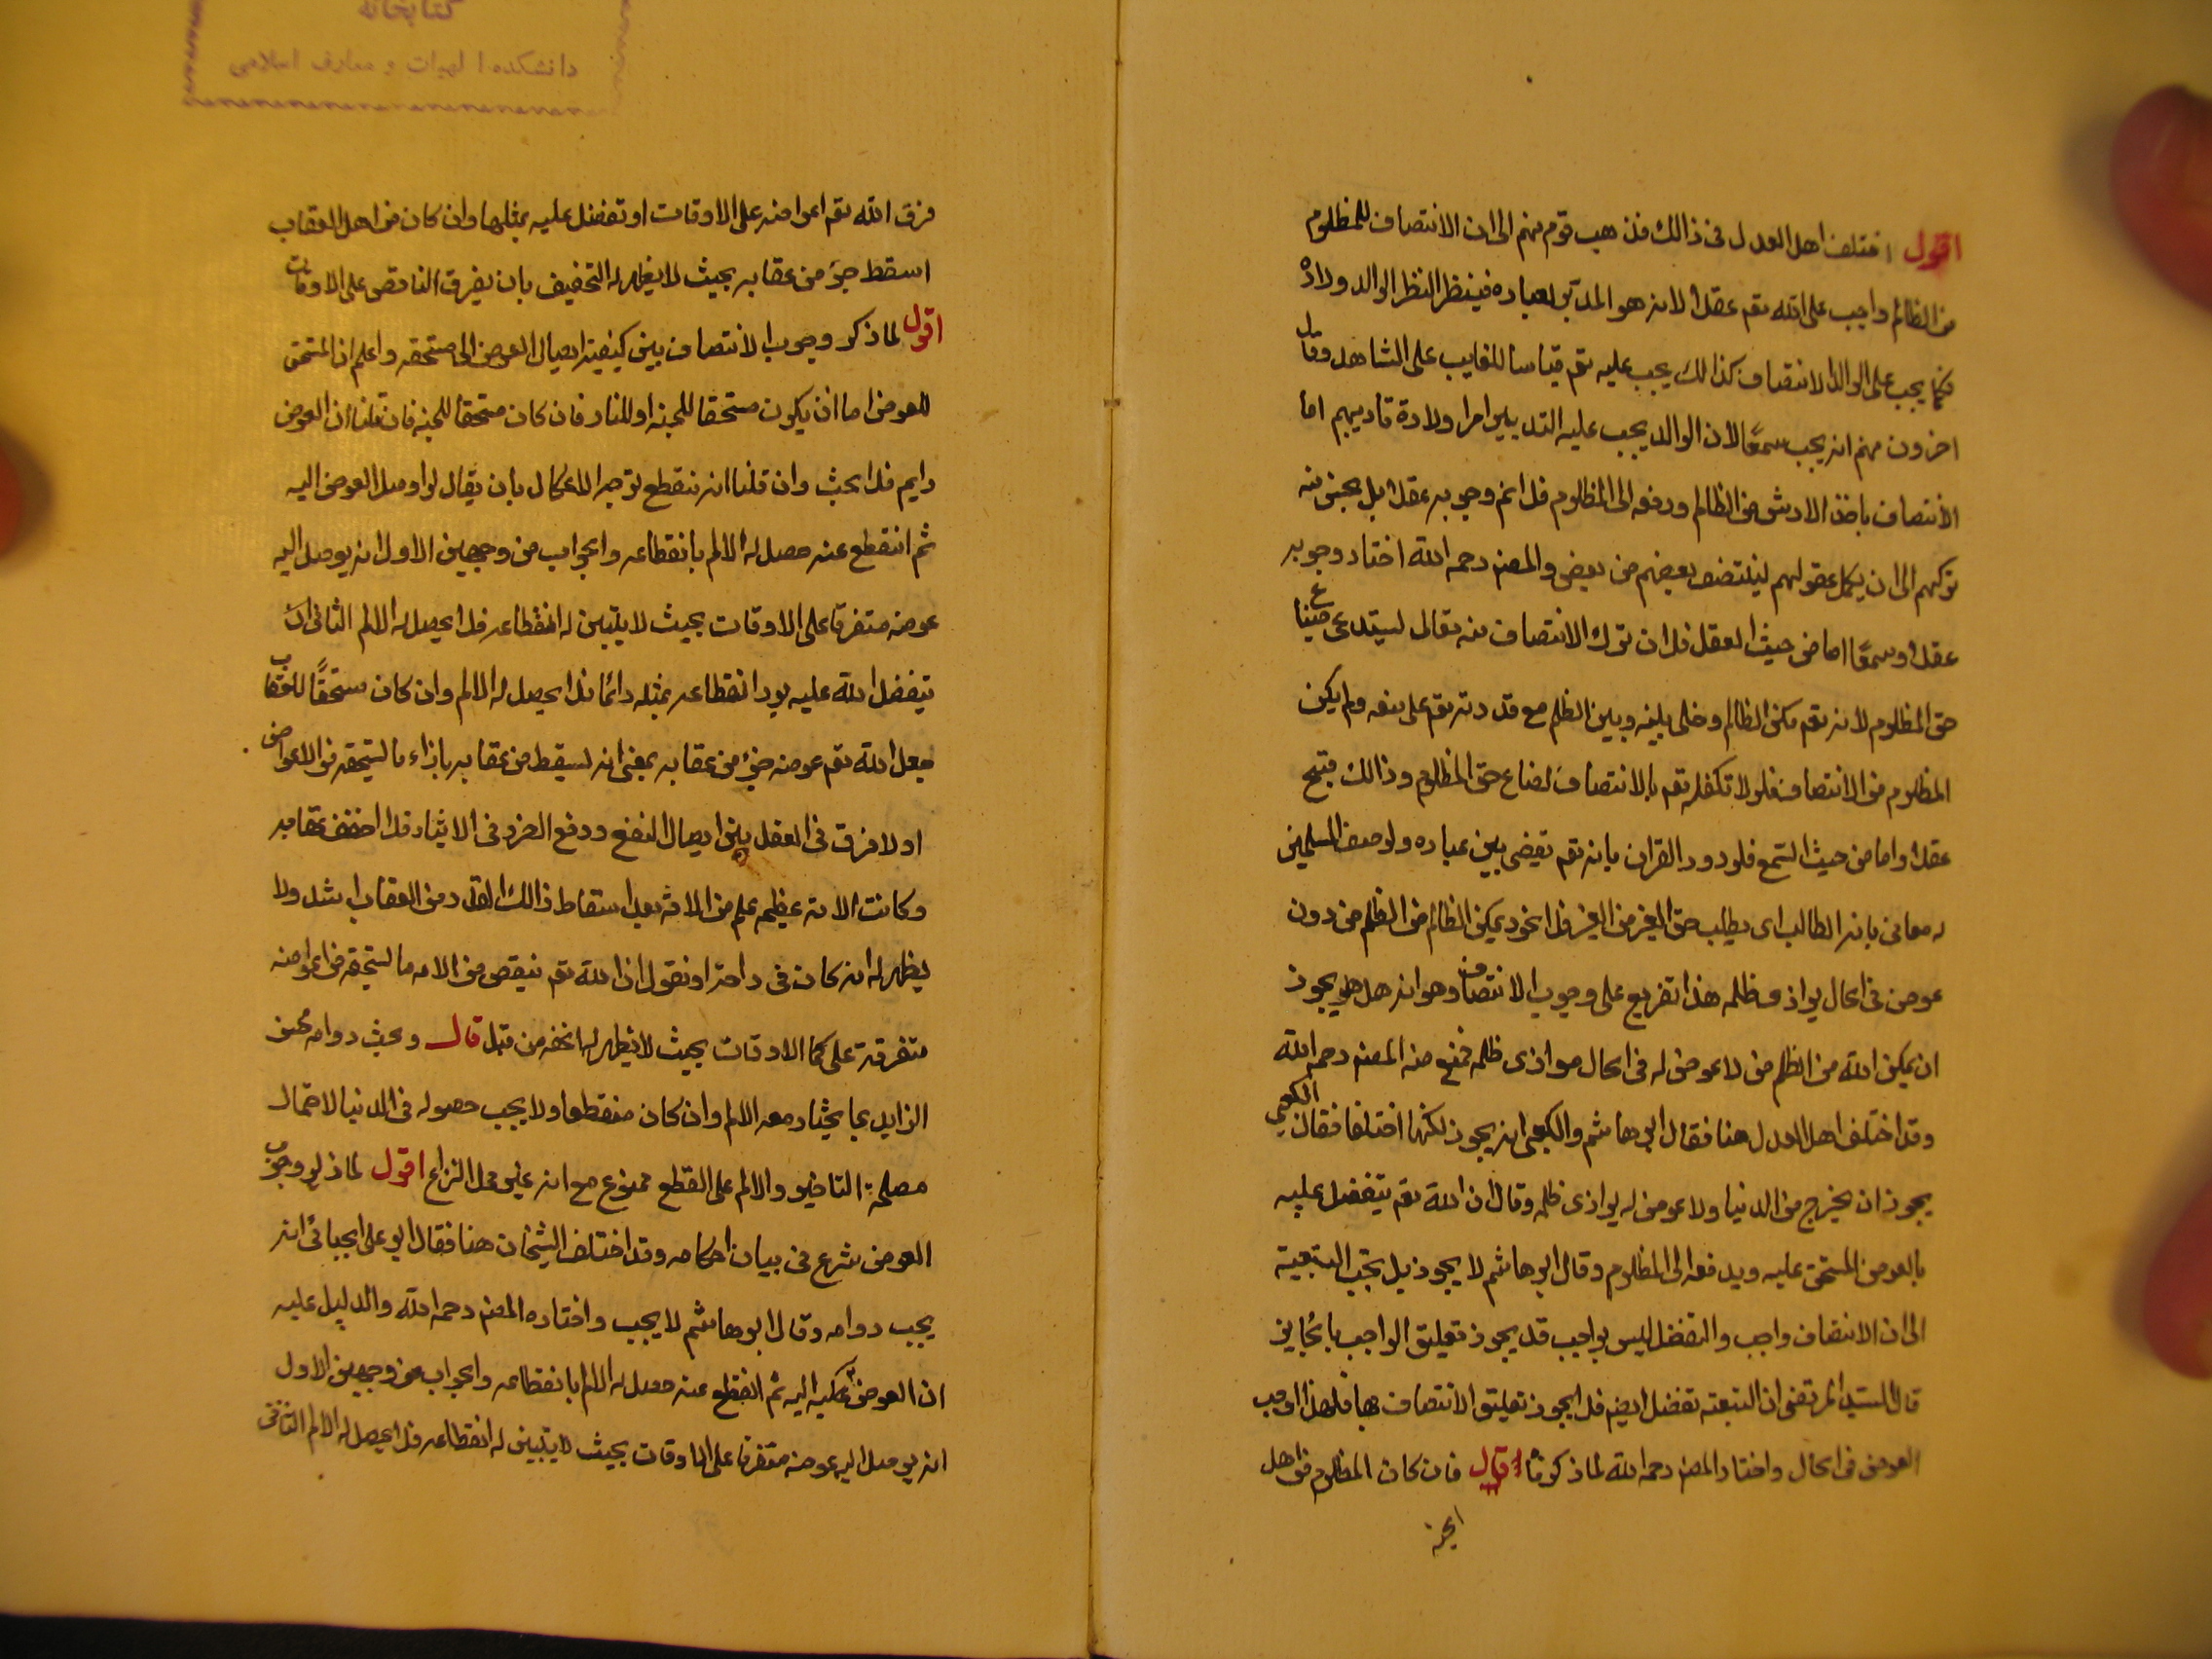 اقول اختلف اهل العدل فى ذالك فذهب قوم منهم الى ان الانتصاف للمظلوم
من الظالم واجب على الله تقم عقلا لانه هو المدبر لعباده فينظر النظر الوالد ولاده
فكما يجب على الوالد الانتصاف كذالك يجب عليه تقم قياسا للغايب على الشاهد وقال
اخرون منهم انه يجب سمعًا لان الوالد يجب عليه التدبير امر اولاده تاديبهم اما
الانتصاف باخذ الارش من الظالم ودفعه الى المظلوم فلا نم وجوبه عقلا بل يحسن منه
تركهم الى ان يكمل عقولهم لينتصف بعضهم من بعض والمصنم رحمه الله اختار وجوبه
عقلا وسمعًا اما من حيث العقل فلان ترك الانتصاف منه تعالى ليستدعى ضياع
حق المظلوم لانه تقم مكن الظالم وخلى بلينه وبين الظلم مع قدرته تقم على منعه ولم يكن
المظلوم من الانتصاف فلولا تكفله تقم بالانتصاف لضاع حق المظلوم وذالك قبيح
عقلا واما من حيث السمع فلورود القران بانه تقم يقضى بين عباده ولوصف المسلمين
له معانى بانه الطالب اى يطلب حق الغير من الغير فلا يجوز تمكين الظالم من الظلم من دون
عوض فى الحال يوازى ظلمه هذا تفريع على وجوب الانتصاف وهو انه هل يجوز
ان يمكن الله من الظلم من لا عوض له فى الحال موازى ظلمه فمنع منه المصنم رحمه الله
وقد اختلف اهل العدل هنا فقال ابوهاشم والكعبى انه يجوز لكنهما اختلفا فقال الكعبى
يجوز ان يخرج من الدنيا ولا عوض له يوازى ظلمه وقال ان الله تقم يتفضل عليه
بالعوض المستحق عليه ويدفعه الى المظلوم وقال ابوهاشم لا يجوز بل تجب التبقية
الى ان الانتصاف واجب والتفضل ليس بواجب قد يجوز تعليق الواجب بالجايز
قال السيد المرتضى ان التبقيه تفضل ايضم فلا يجوز تعليق الانتصاف بها فلهذا اوجب
العوض فى الحال واختار المصنم رحمه الله لما ذكرنا قال فان كان المظلوم من اهل
الجنة
فرق الله تقم اعواضه على الاوقات او تفضل عليه بمثلها وان كان من اهل العقاب
اسقط جزء من عقابه بحيث لا يظهر له التخفيف بان يفرق الناقص على الاوقات
اقول لما ذكر وجوب الانتصاف بين كيفية ايصال العوض الى مستحقه واعلم ان المستحق
للعوض اما ان يكون مستحقا للجنه او للنار فان كان مستحقا للجنه فان قلنا ان العوض
دايم فلا بحث وان قلنا انه ينقطع توجه الاشكال بان يقال لو اوصل العوض اليه
ثم انتقطع عنه حصل له الالم بانقطاعه والجواب من وجهين الاول انه يوصل اليه
عوضه متفرقا على الاوقات بحيث لا يتبين له انقطاعه فلا يحصل له الالم الثانى ان
يتفضل الله عليه بعد انقطاعه بمثله دائما فلا يحصل له الالم وان كان مستحقًا للعقاب
جعل الله تقم عوضه جزء من عقابه بمعنى انه يسقط من عقابه بازاء ما يستحقه من الاعواض
اولا فرق فى العقل بين ايصال النفع ودفع الضرر فى الايثار فلا اخفف عقابه
وكانت الامه عظيمه علم من الافه بعد استقاط ذالك القدر من العقاب اشد ولا
يظهر له انه كان فى راحه او نقول ان الله تقم ينقص من الامه ما يستحقه من اعواضه
متفرقة على كما الاوقات بحيث لا يظهر له الخفه من قبل قال وبحث دوامه لحسن
الزايد بما يختار معه الالم وان كان منقطعا ولا يجب حصوله فى الدنيا لاحتمال
مصلحة التاخير والالم على القطع ممنوع مع انه غير محل النزاع اقول لما ذكر وجوب
العوض شرع فى بيان احكامه وقد اختلف الشيخان هنا فقال ابو على الجبائى انه
يجب دوامه وقال ابوهاشم لا يجب واختاره المصنم رحمه الله والدليل عليه
ان العوض اليه ثم انقطع عنه حصل له الالم بانقطاعه والجواب من وجهين الاول
انه يوصل اليه عوضه متفرقا على الاوقات بحيث لا يتبين له انقطاعه فلا يحصل له الالم الثانى
كتابخانه
دانشكده الهيات و معارف اسلامى